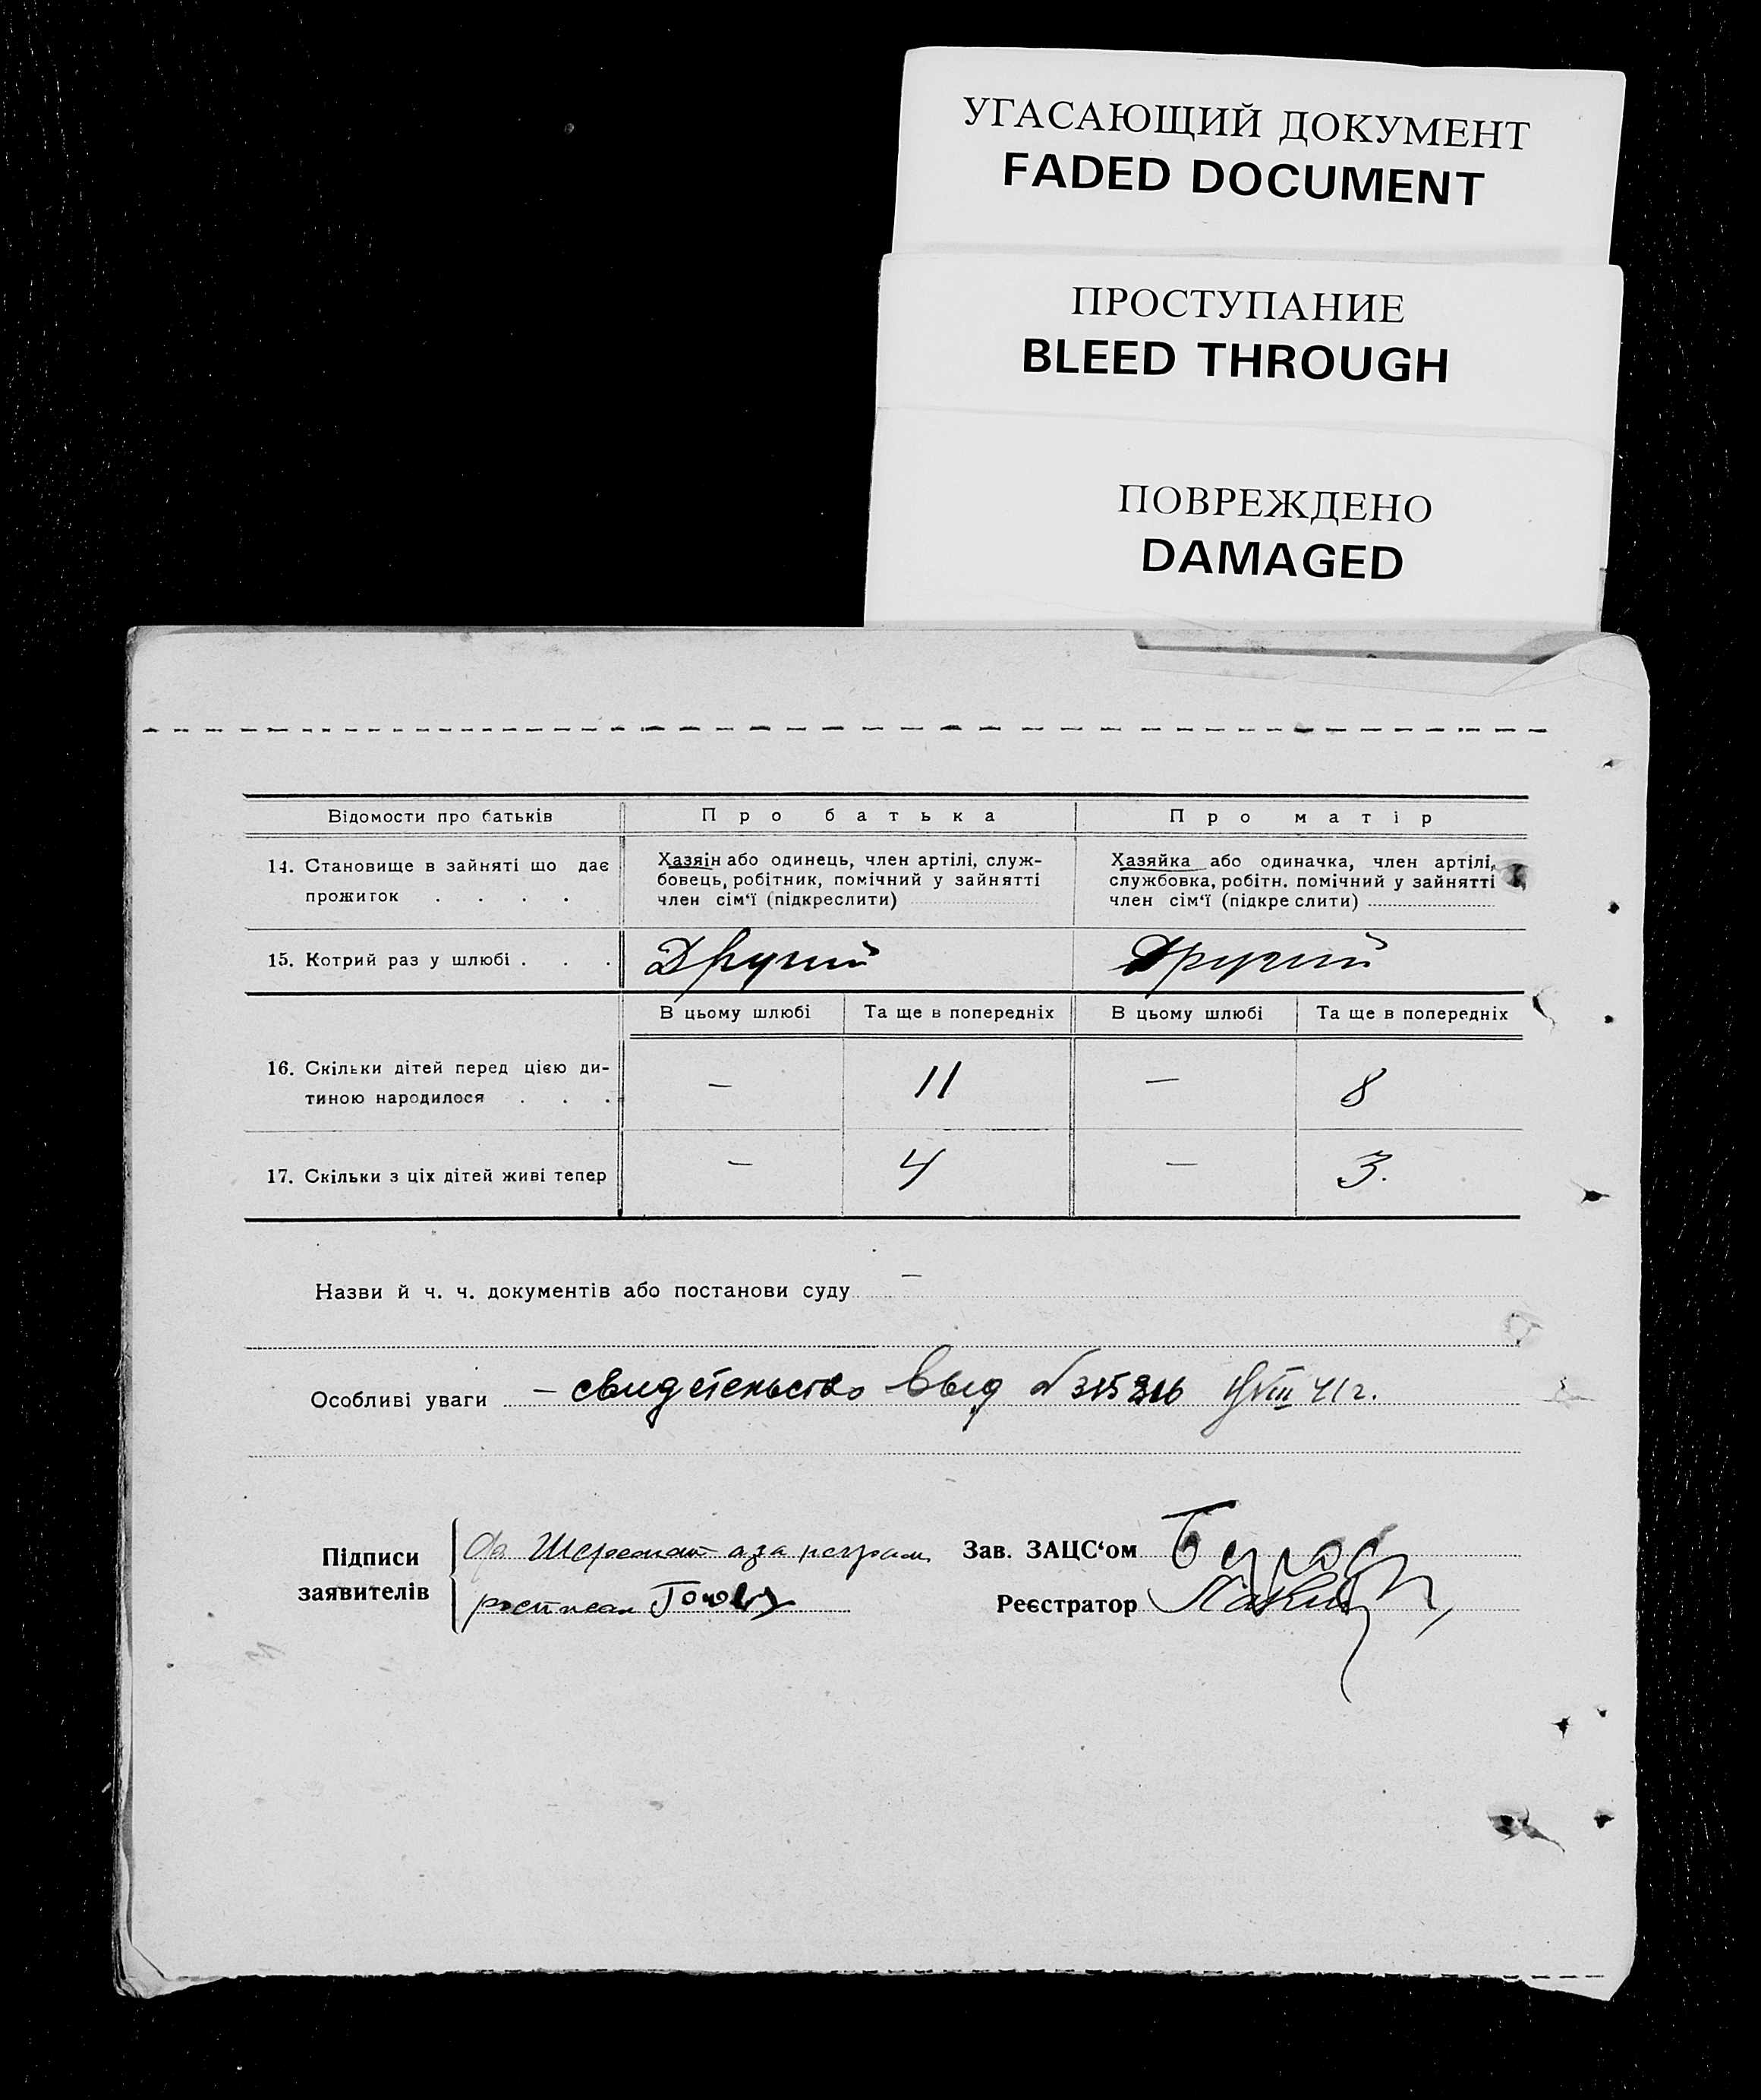 УГАСАЮЩИЙ ДОКУМЕНТ
FADED DOCUMENT
ПРОСТУПАНИЕ
BLEED THROUGH
ПОВРЕЖДЕНО
DAMAGED
Відомости про батьків
Про батька
Про матір
14. Становище в зайняті що дає
прожиток . . . .
Хазяін або одинець, член артілі, служ-
бовець, робітник, помічний у зайнятті
член сім‘ї (підкреслити)
Хазяйка або одиначка, член артілі,
службовка, робітн. помічний у зайнятті
член сім‘ї (підкреслити)
15. Котрий раз у шлюбі . . .
Другий
Другий
В цьому шлюбі
Та ще в попередніх
В цьому шлюбі
Та ще в попередніх
16. Скільки дітей перед цією ди-
тиною народилося . . .
— 11 — 8
17. Скільки з ціх дітей живі тепер
— 4 — 3.
Назви й ч. ч. документів або постанови суду —
Особливі уваги — свидетельство выд № VIII 41 г.
Підписи
заявителів
Зав. ЗАЦС‘ом
Реєстратор